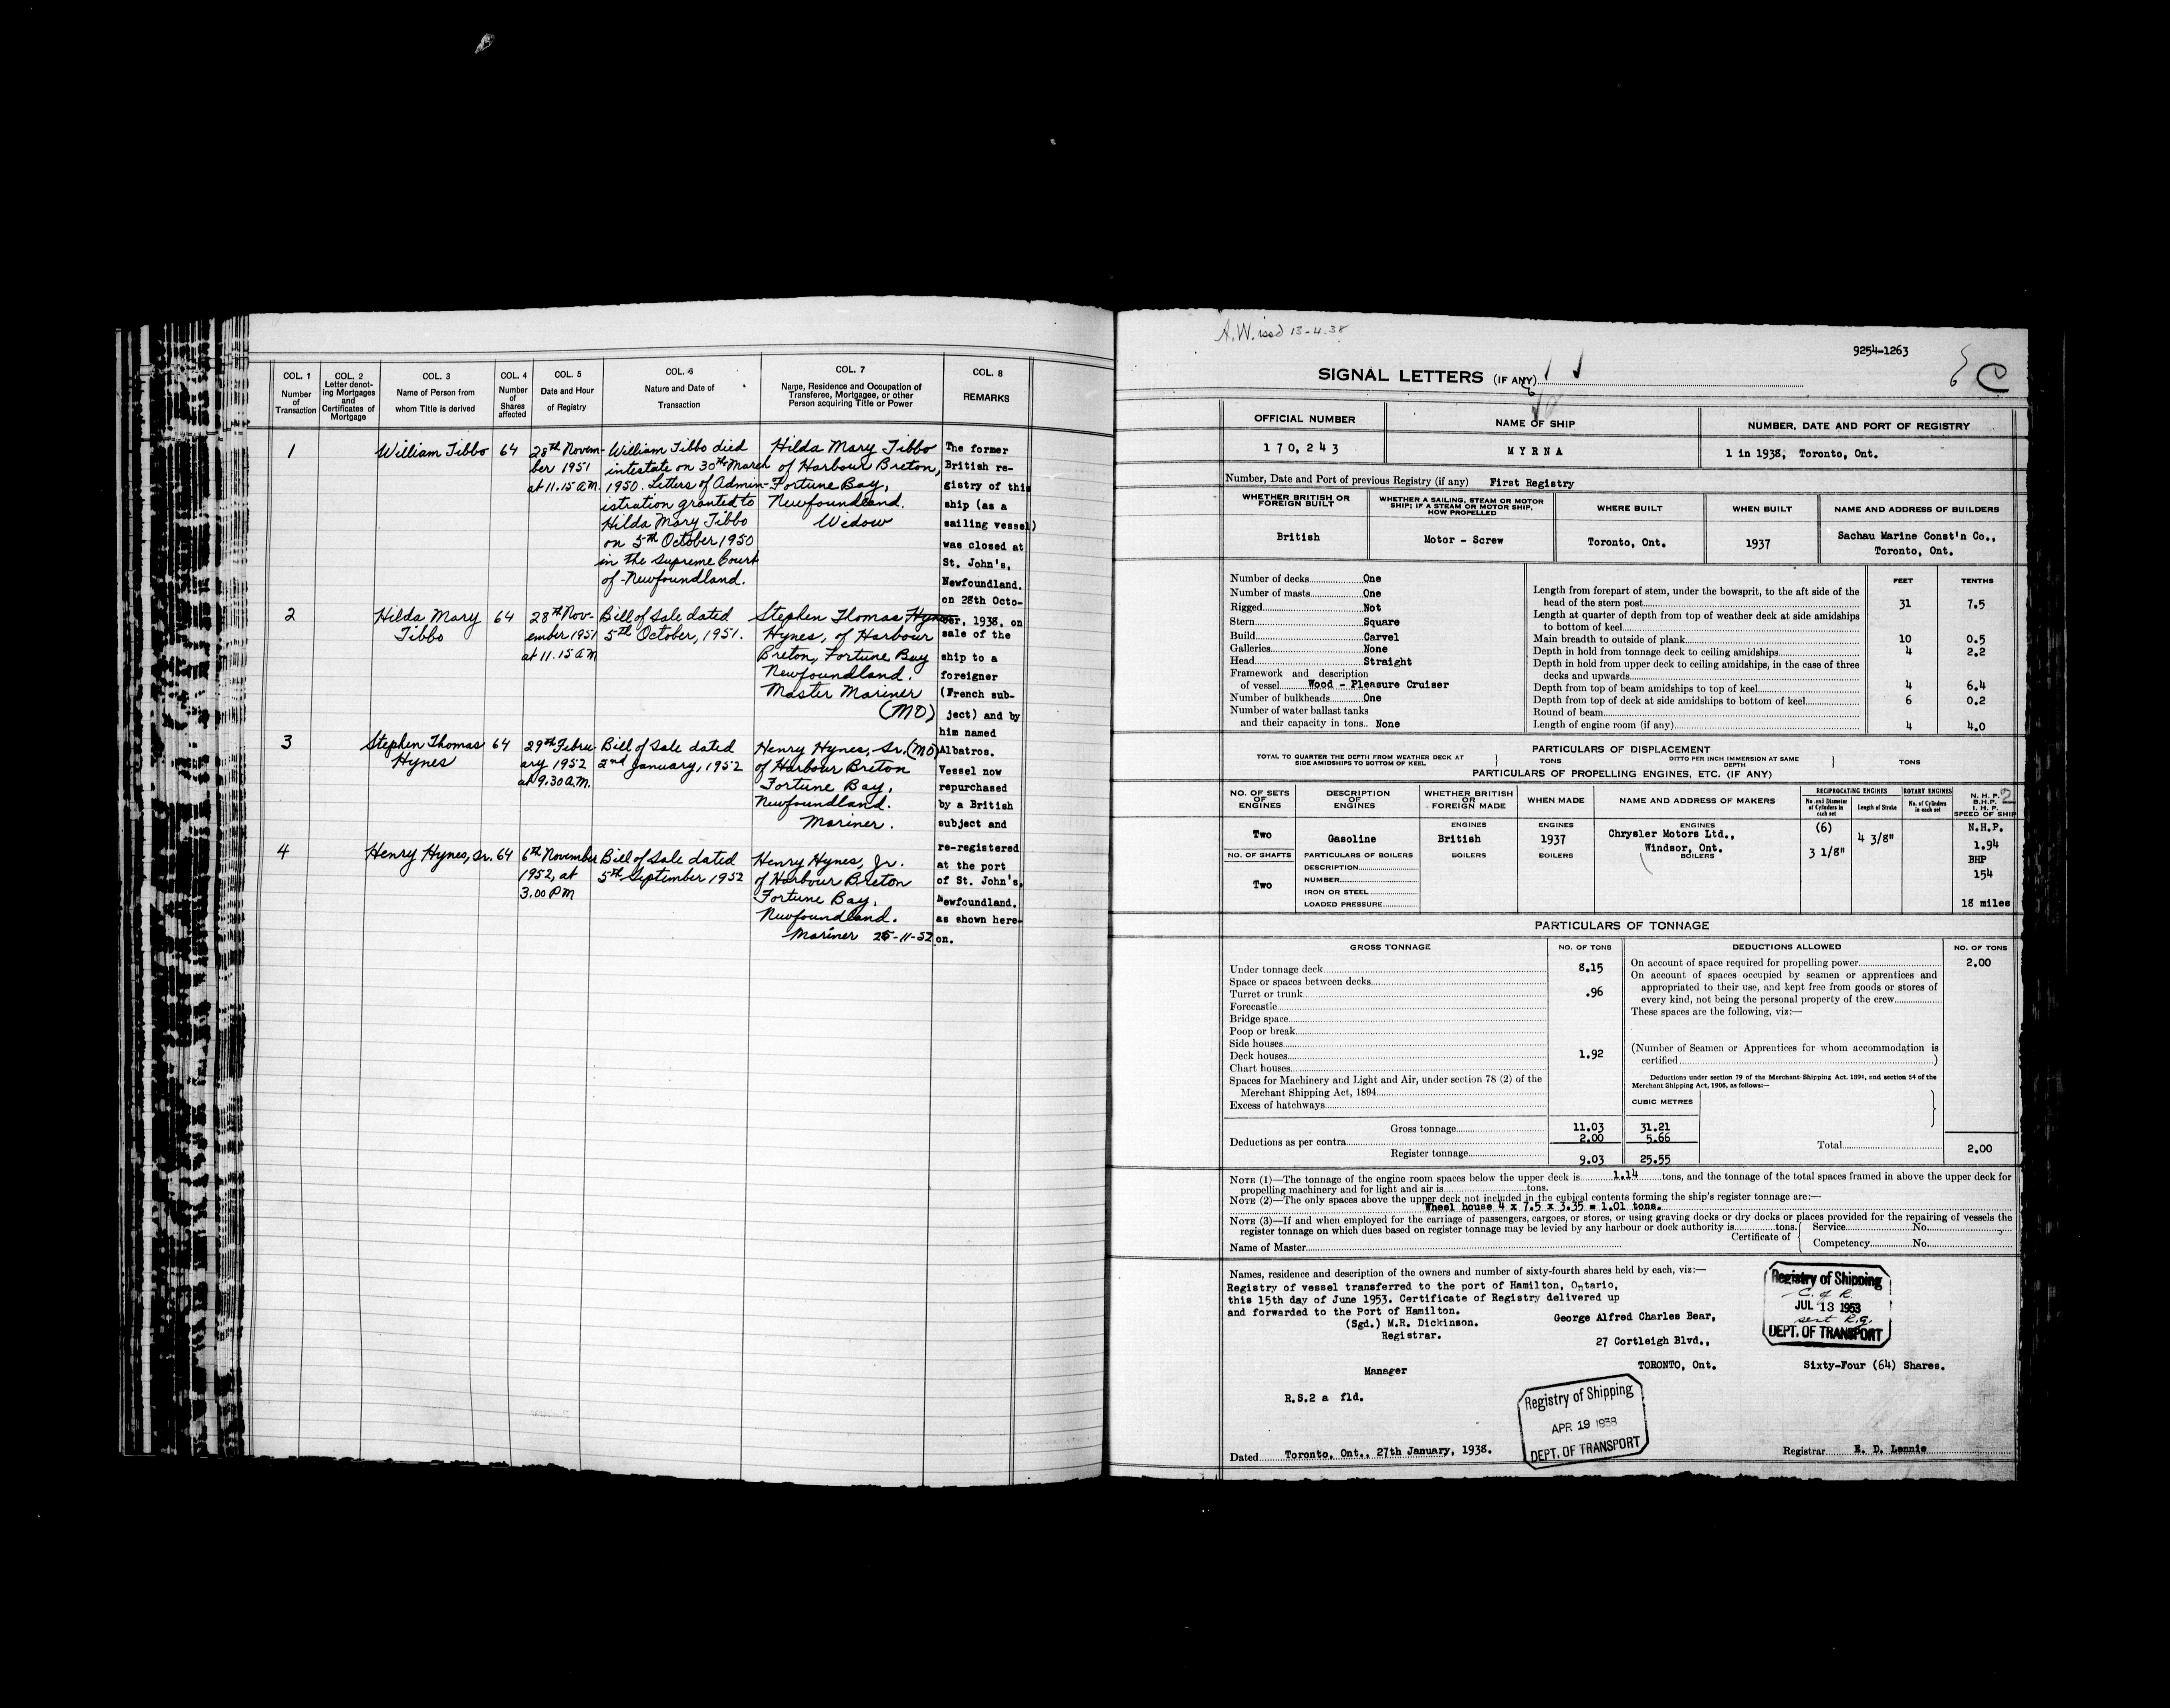 COL. 1
Number
of
Transaction
COL. 2
Letter denot-
ing Mortgages
and
Certificates of
Mortgage
COL. 3
Name of Person from
whom Title is derived
COL. 4
Number
of
Shares
affected
COL. 5
Date and Hour
of Registry
COL. 6
Nature and Date of
Transaction
COL. 7
Name, Residence and Occupation of
Transferee, Mortgagee, or other
Person acquiring Title or Power
COL. 8
REMARKS
1
William Tibbo
64
28th Novem-
ber 1951
at 11.15 a.m.
William Tibbo died
intestate on 30th March
1950. Letters of Admin-
istration granted to
Hilda Mary Tibbo
on 5th October 1950
in the Supreme Court
of Newfoundland.
Hilda Mary Tibbo
of Harbour Breton,
Fortune Bay,
Newfoundland.
Widow
2
Hilda Mary
Tibbo
64
28th Nov-
ember 1951
at 11.15 a m
Bill of Sale dated
5th October, 1951.
Stephen Thomas Hynes
Hynes, of Harbour
Breton, Fortune Bay
Newfoundland.
Master Mariner
(MO)
3
Stephen Thomas
Hynes
64
29th Febru-
ary 1952
at 9.30 a.m.
Bill of Sale dated
2nd January, 1952
Henry Hynes, Sr. (MO)
of Harbour Breton
Fortune Bay,
Newfoundland.
Mariner.
4
Henry Hynes, Sr.
64
6th November
1952, at
3.00 PM
Bill of Sale dated
5th September 1952
Henry Hynes, Jr.
of Harbour Breton
Fortune Bay,
Newfoundland.
Mariner 25-11-52
The former
British re-
gistry of this
ship (as a
sailing vessel)
was closed at
St. John's,
Newfoundland.
on 28th Octo-
ber, 1938, on
sale of the
ship to a
foreigner
(French sub-
ject) and by
him named
Albatros.
Vessel now
repurchased
by a British
subject and
re-registered
at the port
of St. John's,
Newfoundland.
as shown here-
on.
A.W. issd 13-4-38
9254-1263
C
SIGNAL LETTERS (IF ANY)
OFFICIAL NUMBER
170,243
NAME OF SHIP
MYRNA
NUMBER, DATE AND PORT OF REGISTRY
1 in 1938, Toronto, Ont.
Number, Date and Port of previous Registry (if any) First Registry
WHETHER BRITISH OR
FOREIGN BUILT
British
WHETHER A SAILING, STEAM OR MOTOR
SHIP; IF A STEAM OR MOTOR SHIP,
HOW PROPELLED
Motor - Screw
WHERE BUILT
Toronto, Ont.
WHEN BUILT
1937
NAME AND ADDRESS OF BUILDERS
Sachau Marine Const'n Co.,
Toronto, Ont.
Number of decks One
Number of masts One
Rigged Not
Stern Square
Build Carvel
Galleries None
Head Straight
Framework and description
of vessel Wood - Pleasure Cruiser
Number of bulkheads One
Number of water ballast tanks
and their capacity in tons.. None
FEET TENTHS
Length from forepart of stem, under the bowsprit, to the aft side of the
head of the stern post 31 7.5
Length at quarter of depth from top of weather deck at side amidships
to bottom of keel
Main breadth to outside of plank 10 0.5
Depth in hold from tonnage deck to ceiling amidships 4 2.2
Depth in hold from upper deck to ceiling amidships, in the case of three
decks and upwards
Depth from top of beam amidships to top of keel 4 6.4
Depth from top of deck at side amidships to bottom of keel 6 0.2
Round of beam
Length of engine room (if any) 4 4.0
PARTICULARS OF DISPLACEMENT
TOTAL TO QUARTER THE DEPTH FROM WEATHER DECK AT
SIDE AMIDSHIPS TO BOTTOM OF KEEL
TONS
DITTO PER INCH IMMERSION AT SAME
DEPTH
TONS
PARTICULARS OF PROPELLING ENGINES, ETC. (IF ANY)
NO. OF SETS
OF
ENGINES
Two
NO. OF SHAFTS
Two
DESCRIPTION
OF
ENGINES
Gasoline
PARTICULARS OF BOILERS
DESCRIPTION
NUMBER
IRON OR STEEL
LOADED PRESSURE
WHETHER BRITISH
OR
FOREIGN MADE
ENGINES
British
BOILERS
WHEN MADE
ENGINES
1937
BOILERS
NAME AND ADDRESS OF MAKERS
ENGINES
Chrysler Motors Ltd.,
Windsor, Ont.
BOILERS
RECIPROCATING ENGINES
No. and Diameter
of Cylinders in
each set
(6)
3 1/8"
Length of Stroke
4 3/8"
ROTARY ENGINES
No. of Cylinders
in each set
N. H. P.
B.H.P.
I. H. P.
SPEED OF SHIP
2
N.H.P.
1.94
BHP
154
18 miles
PARTICULARS OF TONNAGE
GROSS TONNAGE
NO. OF TONS
Under tonnage deck 8.15
Space or spaces between decks
Turret or trunk .96
Forecastle
Bridge space
Poop or break
Side houses
Deck houses 1.92
Chart houses
Spaces for Machinery and Light and Air, under section 78 (2) of the
Merchant Shipping Act, 1894
Excess of hatchways
Gross tonnage 11.03 31.21
Deductions as per contra 2.00 5.66
Register tonnage 9.03 25.55
DEDUCTIONS ALLOWED
NO. OF TONS
On account of space required for propelling power 2.00
On account of spaces occupied by seamen or apprentices and
appropriated to their use, and kept free from goods or stores of
every kind, not being the personal property of the crew
These spaces are the following, viz:—
(Number of Seamen or Apprentices for whom accommodation is
certified )
Deductions under section 79 of the Merchant Shipping Act. 1894, and section 54 of the
Merchant Shipping Act, 1906, as follows:—
CUBIC METRES
Total 2.00
NOTE (1)—The tonnage of the engine room spaces below the upper deck is 1.14 tons, and the tonnage of the total spaces framed in above the upper deck for
propelling machinery and for light and air is tons.
NOTE (2)—The only spaces above the upper deck not included in the cubical contents forming the ship's register tonnage are:—
Wheel house 4 x 7.5 x 3.35 = 1.01 tons.
NOTE (3)—If and when employed for the carriage of passengers, cargoes, or stores, or using graving docks or dry docks or places provided for the repairing of vessels the
register tonnage on which dues based on register tonnage may be levied by any harbour or dock authority is tons.
Name of Master
Certificate of
Service No.
Competency No.
Names, residence and description of the owners and number of sixty-fourth shares held by each, viz:—
Registry of vessel transferred to the port of Hamilton, Ontario,
this 15th day of June 1953. Certificate of Registry delivered up
and forwarded to the Port of Hamilton.
(Sgd.) M.R. Dickinson.
Registrar.
George Alfred Charles Bear,
27 Cortleigh Blvd.,
TORONTO, Ont.
Manager
R.S.2 a fld.
Registry of Shipping
C. of R.
JUL 13 1953
sent R.g.
DEPT. OF TRANSPORT
Sixty-Four (64) Shares.
Registry of Shipping
APR 19 1938
DEPT. OF TRANSPORT
Dated Toronto, Ont., 27th January, 1938.
Registrar E. D. Lennie